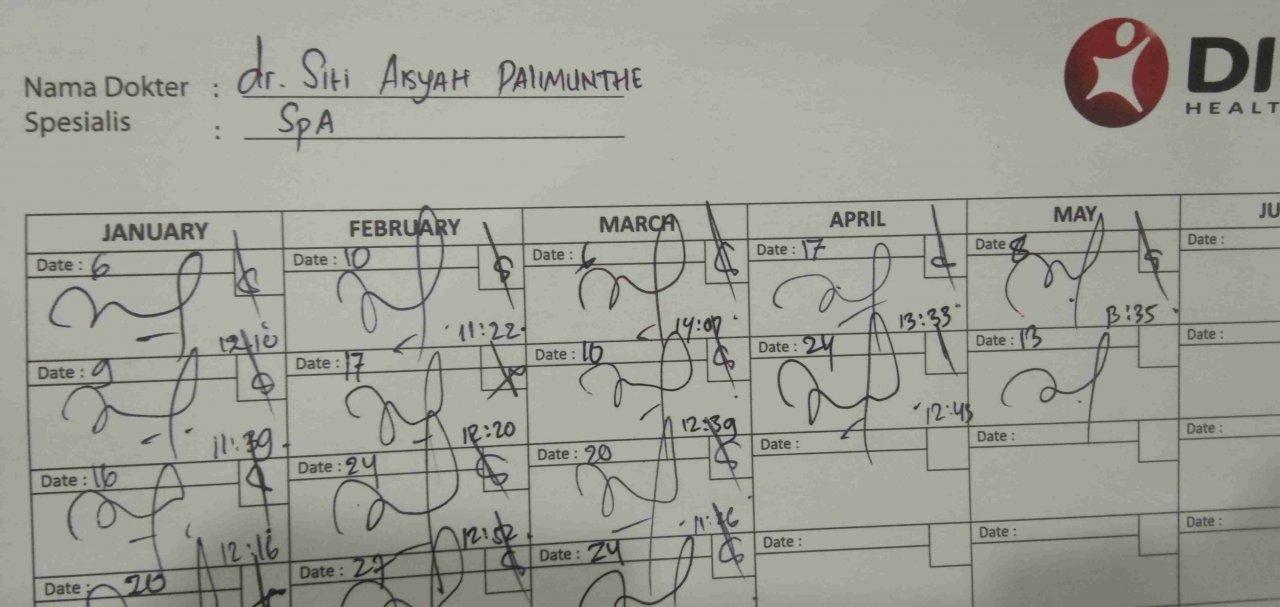 Nama Dokter : dr. Siti Aisyah Dalimunthe
Spesialis : SpA
DI
HEALT
JANUARY FEBRUARY MARCH APRIL MAY JU
Date : 6 Date : 10 Date : 6 Date : 17 Date 8 Date :
12:10 11:22 14:07 13:33 13:35
Date : 9 Date : 17 Date : 10 Date : 24 Date : 13 Date :
11:39 12:20 12:39 12:43
Date : 16 Date : 24 Date : 20 Date : Date : Date :
12:16 12:52 11:26
Date : 20 Date : 27 Date : 24 Date : Date : Date :